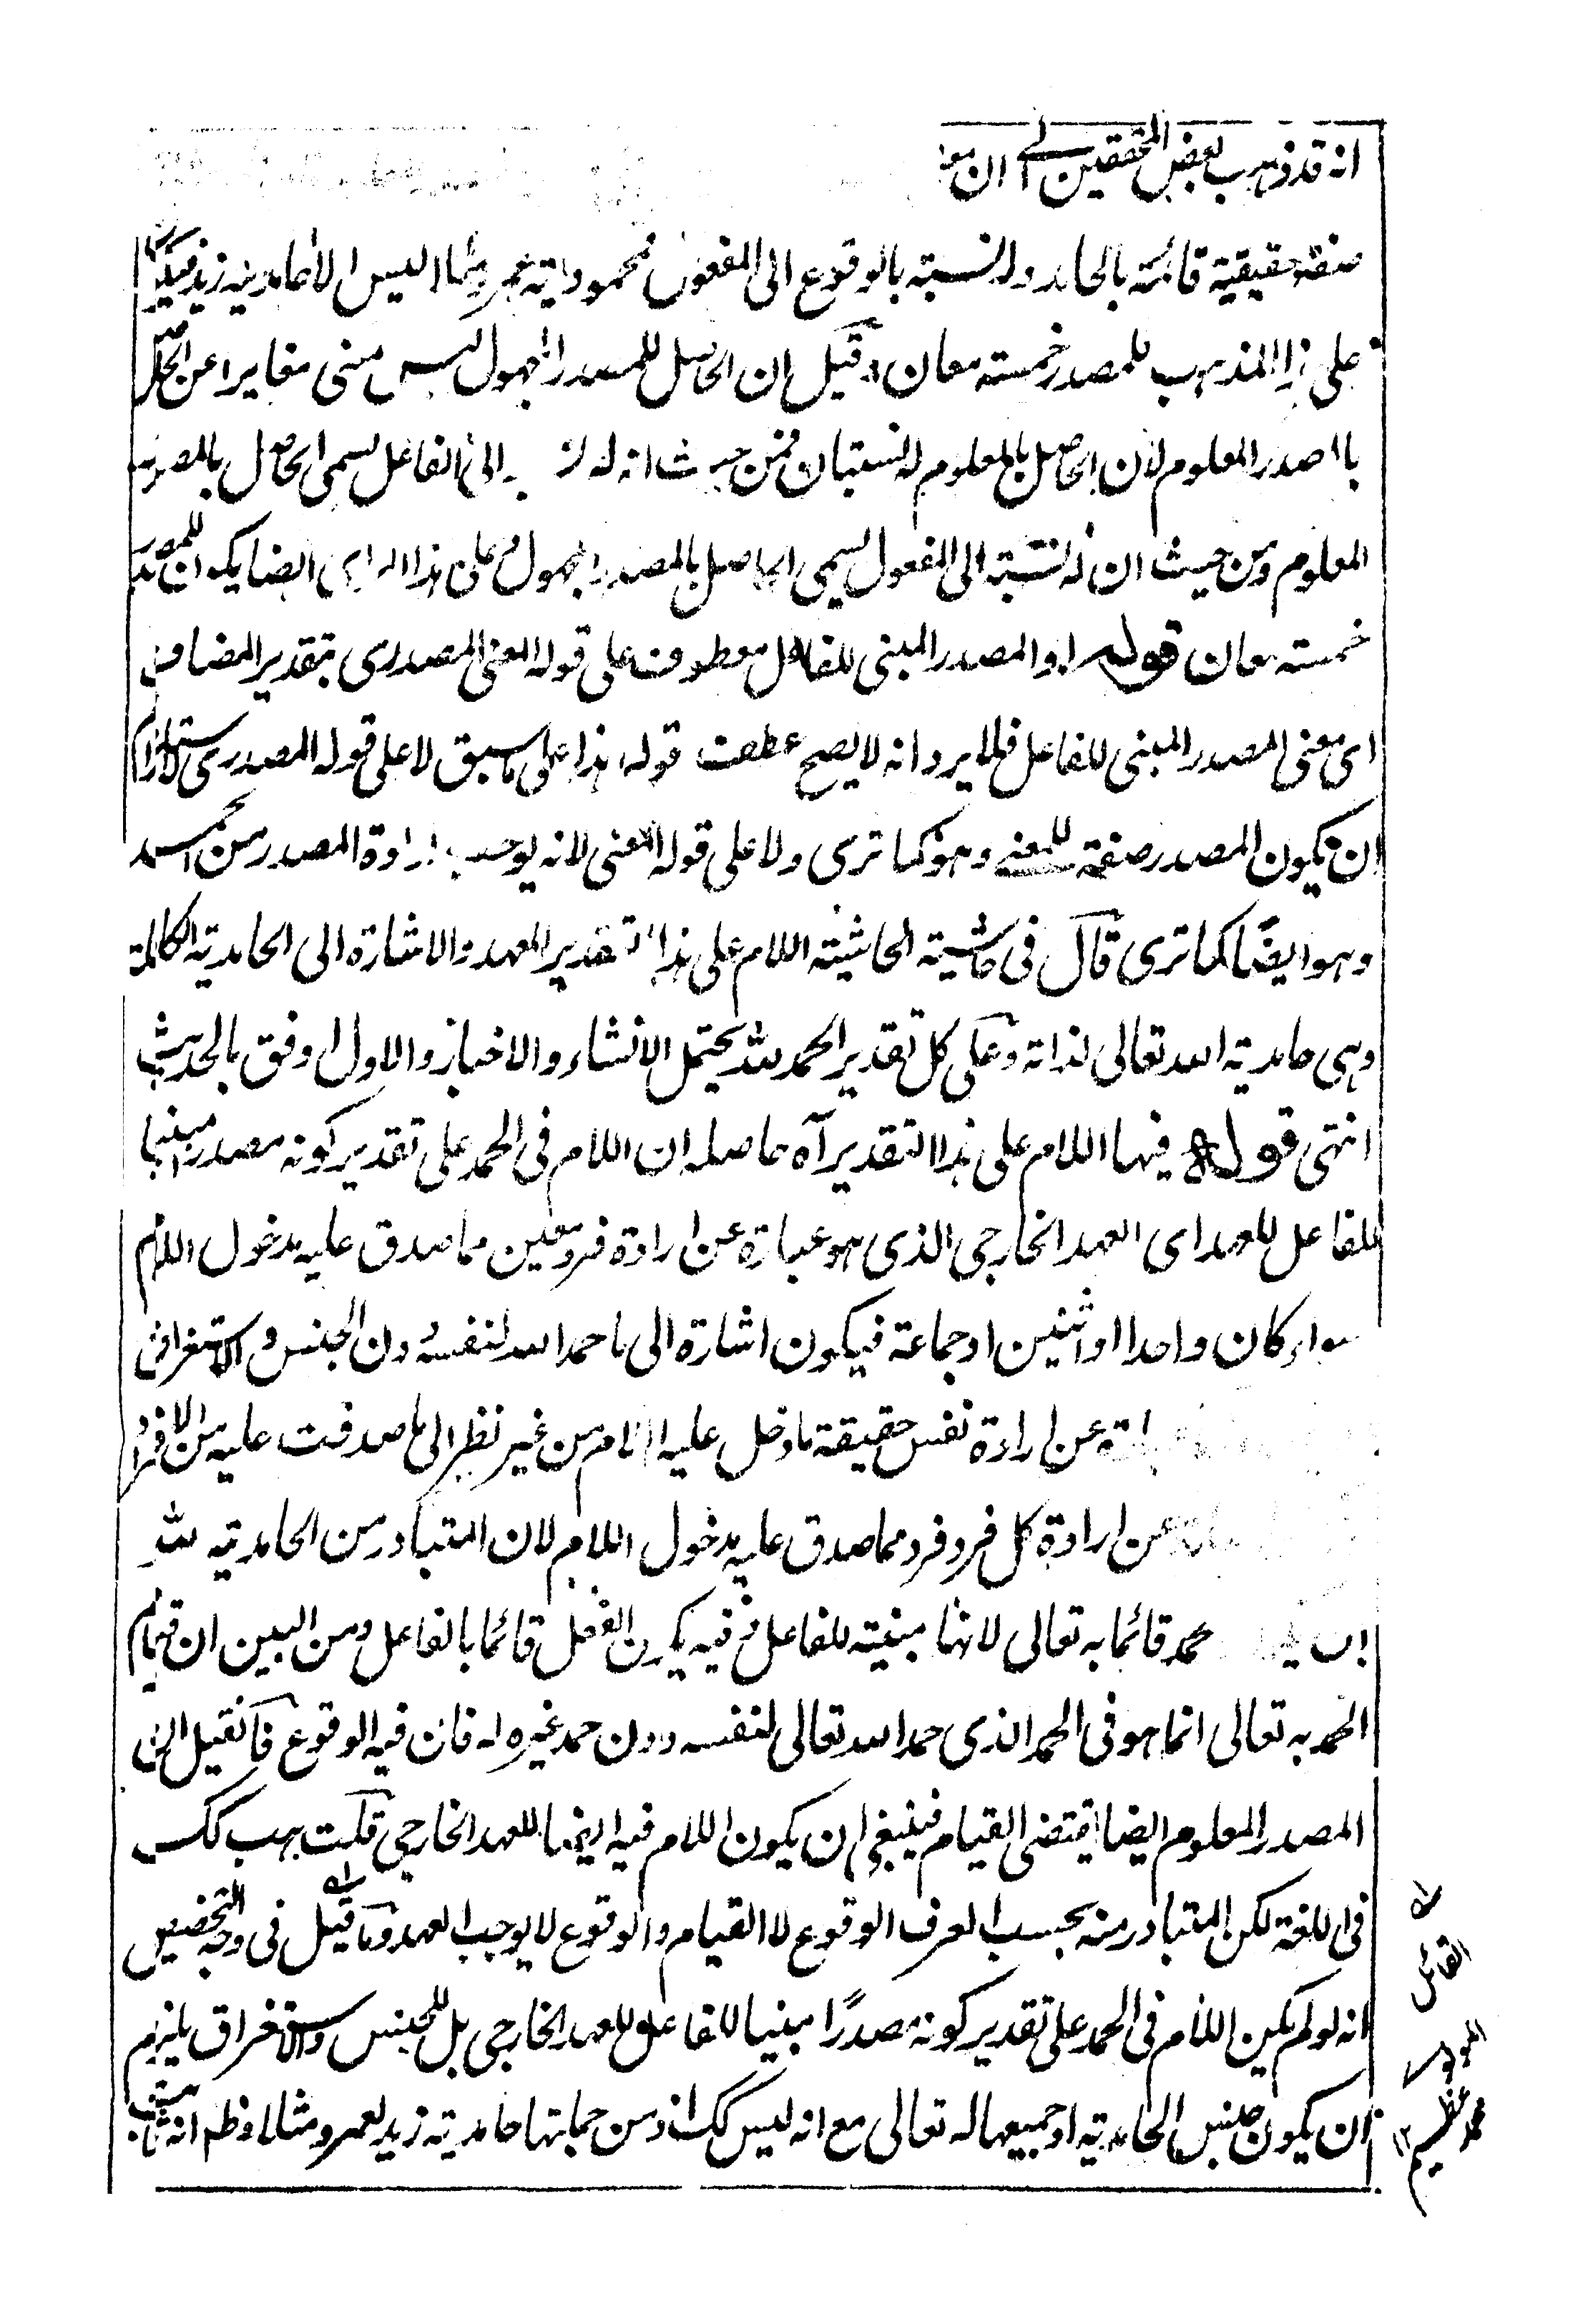 انه قد ذهب بعض المحققين الى ان
صفة حقيقية قائمة بالحامد وله نسبة بالوقوع الى المفعول فمحمودية عمرو مثلا ليس الا حامدية زيد فيكون
على هذا المذهب للمصدر خمسة معان وقيل ان الحاصل للمصدر المجهول ليس معنى مغايرا عن الحاصل
بالمصدر المعلوم لان الحاصل بالمعلوم له نسبتان فمن حيث انه له الى الفاعل يسمى الحاصل بالمصدر
المعلوم ومن حيث ان له نسبة الى المفعول يسمى الحاصل بالمصدر المجهول فعلى هذا الراى ايضا يكون للمصدر
خمسة معان قوله او المصدر المبنى للفاعل معطوف على قوله المعنى المصدرى بتقدير المضاف
اى معنى المصدر المبنى للفاعل فلا يرد انه لا يصح عطف قوله هذا على ما سبق لا على قوله المصدرى لاستلزام
ان يكون المصدر صفة للمعنى وهو كما ترى ولا على قوله المعنى لانه يوجب ارادة المصدر من الحمد
وهو ايضًا كما ترى قال فى حاشية الحاشية اللام على هذا التقدير للعهد والاشارة الى الحامدية الكاملة
وهى حامدية الله تعالى لذاته وعلى كل تقدير الحمد لله يحتمل الانشاء والاخبار والاول اوفق بالحديث
انتهى قوله فيها اللام على هذا التقدير آه حاصله ان اللام فى الحمد على تقدير كونه مصدرا مبنيا
للفاعل للعهد اى العهد الخارجى الذى هو عبارة عن ارادة فرد معين مما صدق عليه مدخول اللام
سواء كان واحدا او اثنين او جماعة فيكون اشارة الى ما حمد الله لنفسه دون الجنس والاستغراق
عن ارادة نفس حقيقة ما دخل عليه اللام من غير نظر الى ما صدقت عليه من الافراد
عن ارادة كل فرد فرد مما صدق عليه مدخول اللام لان المتبادر من الحامدية لله
حمد قائما به تعالى لانها مبنية للفاعل وفيه يكون الفعل قائما بالفاعل ومن البين ان قيام
الحمد به تعالى انما هو فى الحمد الذى حمد الله تعالى لنفسه دون حمد غيره له فان فيه الوقوع فان قيل ان
المصدر المعلوم ايضا يقتضى القيام فينبغى ان يكون اللام فيه ايضا للعهد الخارجى قلت هب كك
فى اللغة لكن المتبادر منه بحسب العرف الوقوع لا القيام والوقوع لا يوجب العهد وما قيل فى وجه التخصيص
انه لو لم يكن اللام فى الحمد على تقدير كونه مصدرًا مبنيا للفاعل للعهد الخارجى بل للجنس والاستغراق يلزم
ان يكون جنس الحامدية او جميعها له تعالى مع انه ليس كك اذ من جملتها حامدية زيد لعمرو مثلا وظم انه
القائل
المولوى
محمد عظيم ١٢